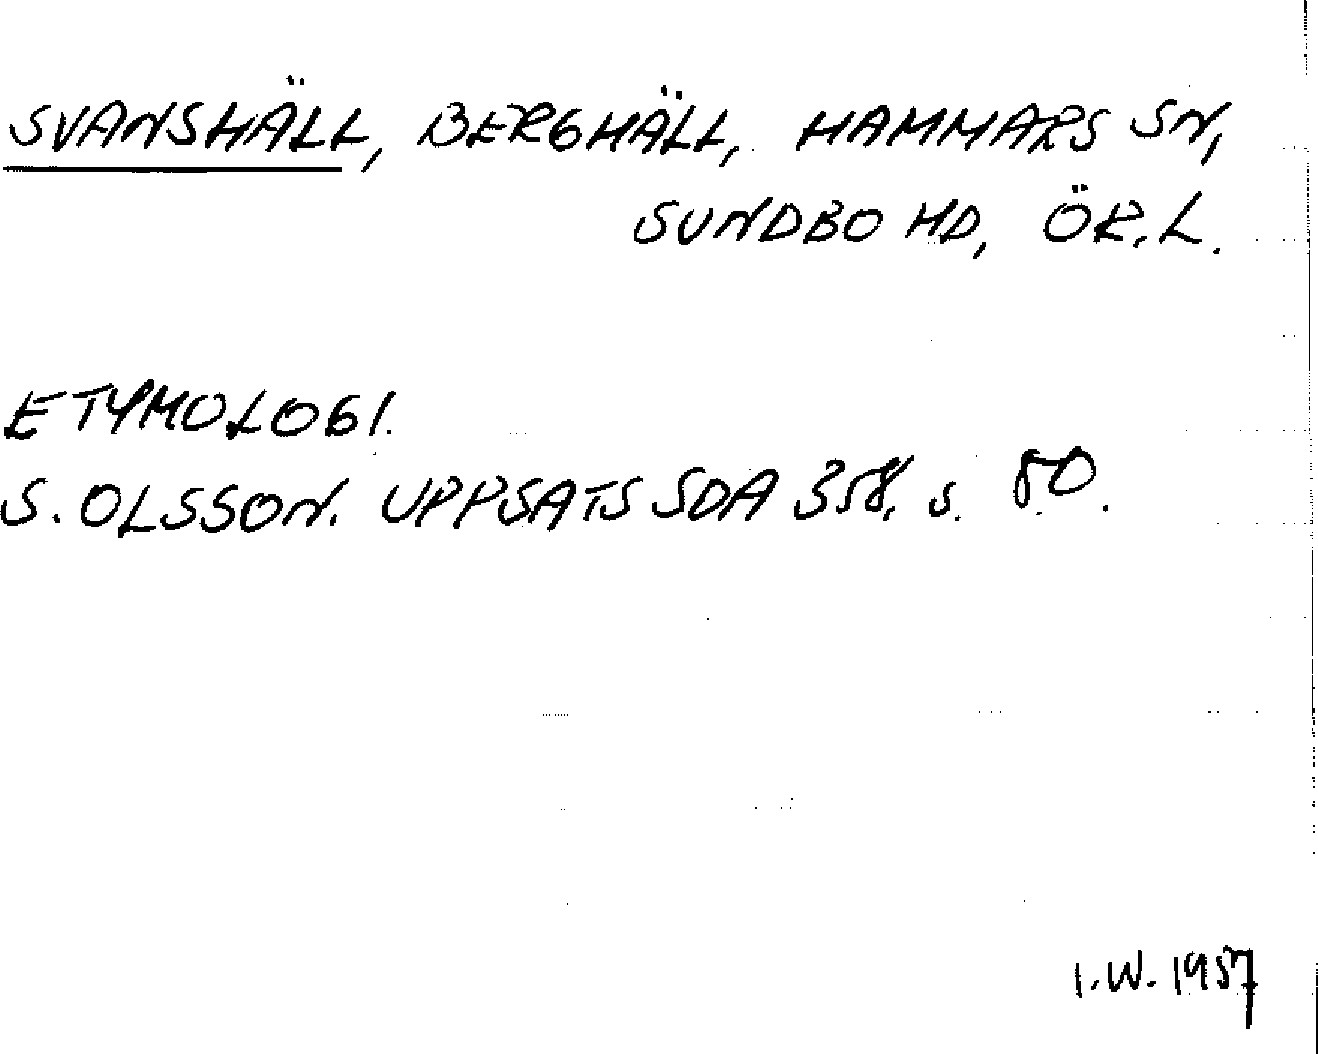 SVANSHÄLL, BERGHÄLL, HAMMARS SN,
SUNDBO HD, ÖR.L.
ETYMOLOGI.
S. OLSSON. UPPSATS SOA 358, s. 80.
I.W. 1957